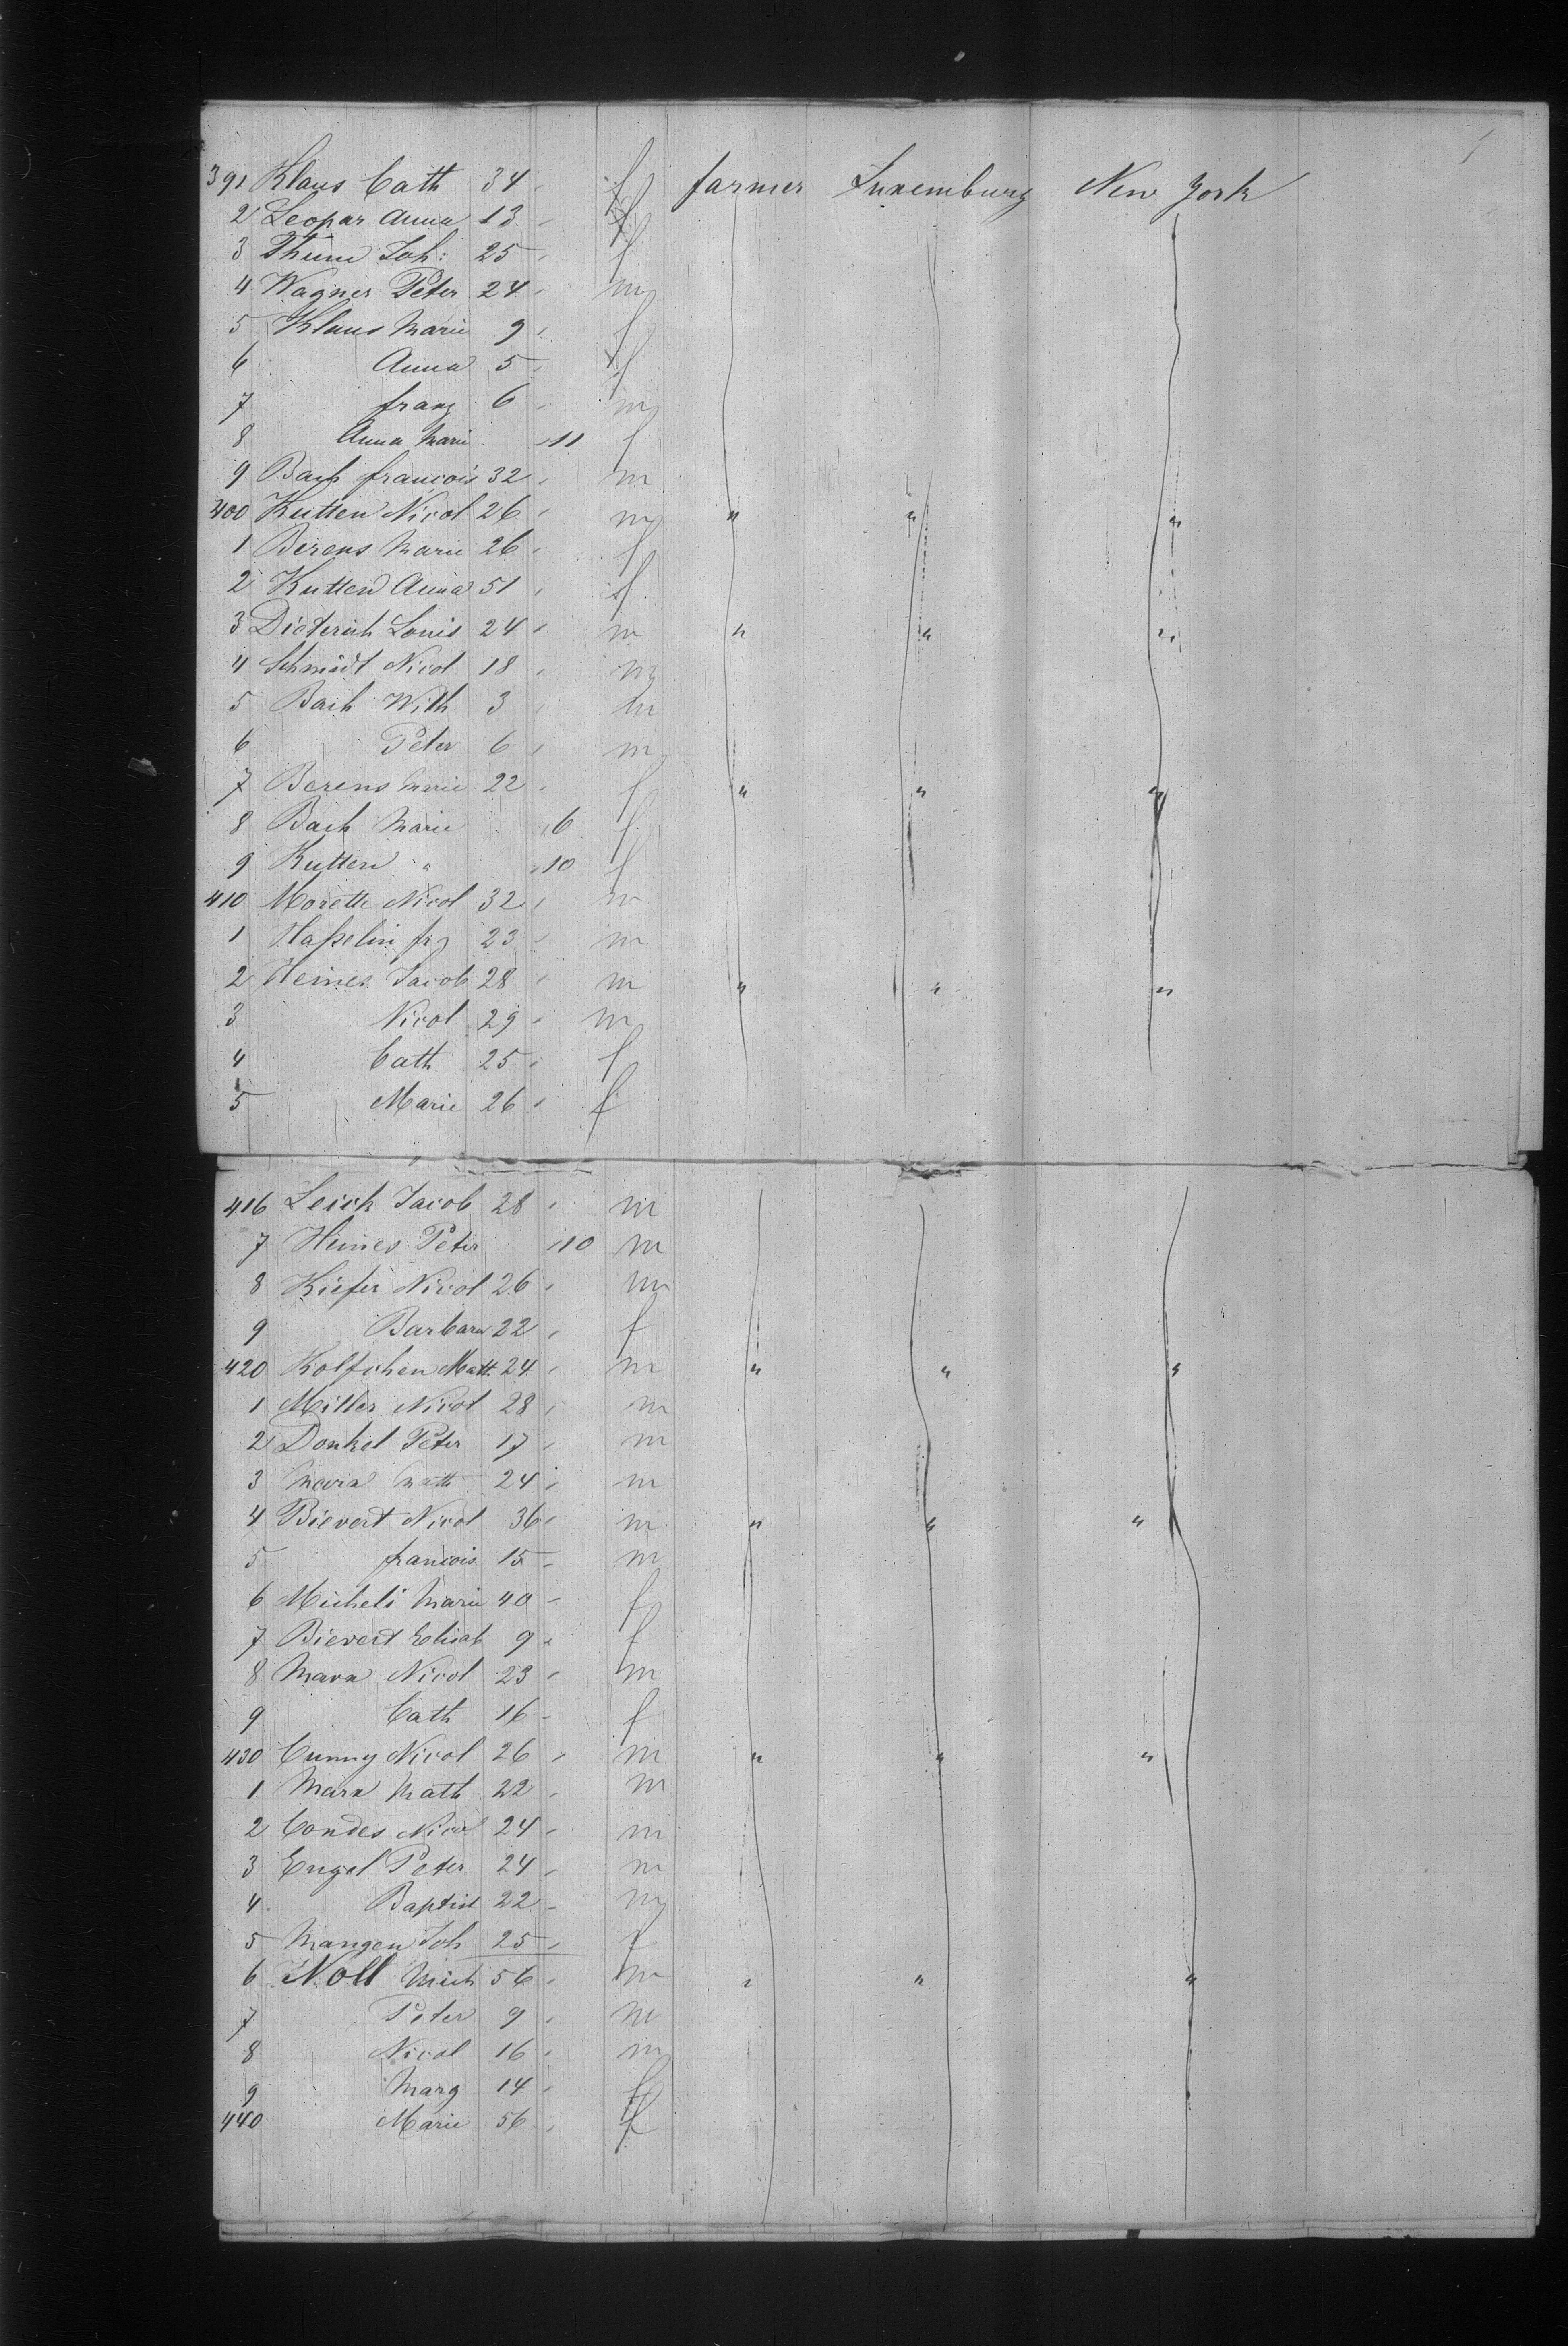 391 Klaus Cath 34 " f farmer Luxemburg New York
2 Leopar Anna 13 " f
3 Thume Joh: 25 " f
4 Wagner Peter 24 " m
5 Klaus Marie 9 " f
6 Anna 5 " f
7 franz 6 " m
8 Anna Marie " 11 f
9 Bach francois 32 " m
400 Kutten Nicol 26 " m " " "
1 Berens Marie 26 " f
2 Kutten Anna 51 " f
3 Dieterich Louis 24 " m " " "
4 Schmidt Nicol 18 " m
5 Bach Wilh 3 " m
6 Peter 6 " m
7 Berens Marie 22 " f " " "
8 Bach Marie " 6 f
9 Kutten " " 10 f
410 Morette Nicol 32 " m
1 Haßelin frz 23 " m
2 Heines Jacob 28 " m " " "
3 Nicol 29 " m
4 Cath 25 " f
5 Marie 26 " f
416 Leick Jacob 28 " m
7 Heines Peter " 10 m
8 Kiefer Nicol 26 " m
9 Barbara 22 " f
420 Kolfchen Matt. 24 " m " " "
1 Miller Nicol 28 " m
2 Donkel Peter 17 " m
3 Marx Math 24 " m
4 Bievert Nicol 36 " m " " "
5 francois 15 " m
6 Micheli Marie 40 " f
7 Bievert Elisab 9 " f
8 Marx Nicol 23 " m
9 Cath 16 " f
430 Cunny Nicol 26 " m " " "
1 Marx Math 22 " m
2 Condes Nicol 24 " m
3 Engel Peter 24 " m
4 Baptist 22 " m
5 Mangen Joh 25 " f
6 Noll Mich 56 " m " " "
7 Peter 9 " m
8 Nicol 16 " m
9 Marg 14 " f
440 Marie 56 " f